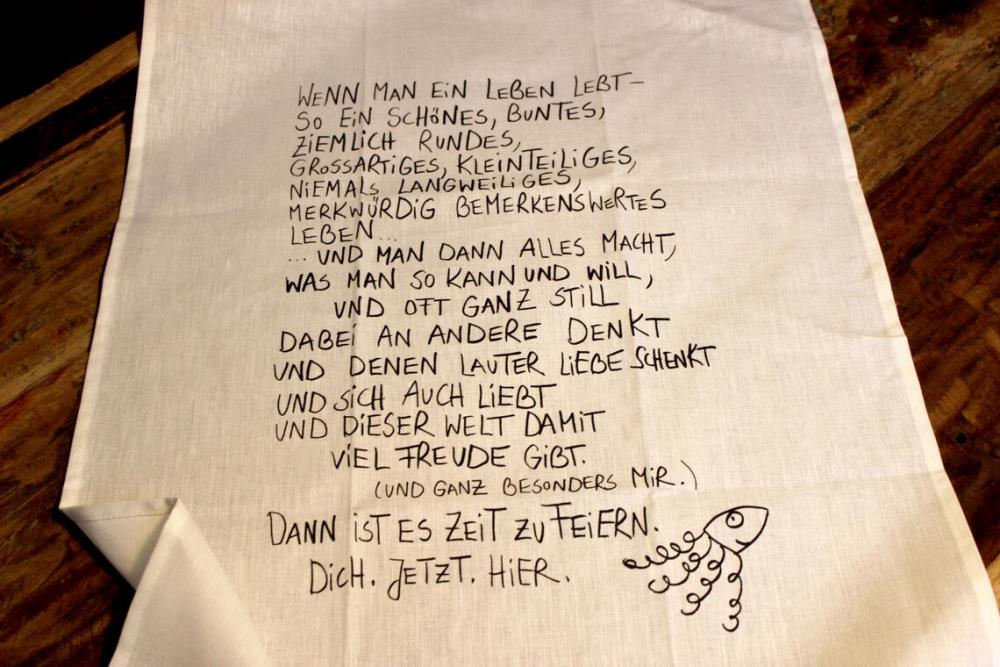 WENN MAN EIN LEBEN LEBT–
SO EIN SCHÖNES, BUNTES,
ZIEMLICH RUNDES,
GROSSARTIGES, KLEINTEILIGES,
NIEMALS LANGWEILIGES,
MERKWÜRDIG BEMERKENSWERTES
LEBEN...
...UND MAN DANN ALLES MACHT,
WAS MAN SO KANN UND WILL,
UND OFT GANZ STILL
DABEI AN ANDERE DENKT
UND DENEN LAUTER LIEBE SCHENKT
UND SICH AUCH LIEBT
UND DIESER WELT DAMIT
VIEL FREUDE GIBT.
(UND GANZ BESONDERS MIR.)
DANN IST ES ZEIT ZU FEIERN.
DICH. JETZT. HIER.